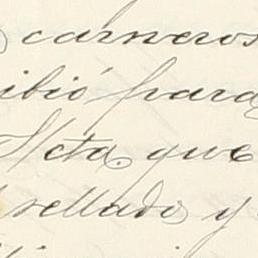 carneros
ibió para
Acta que
sellado y